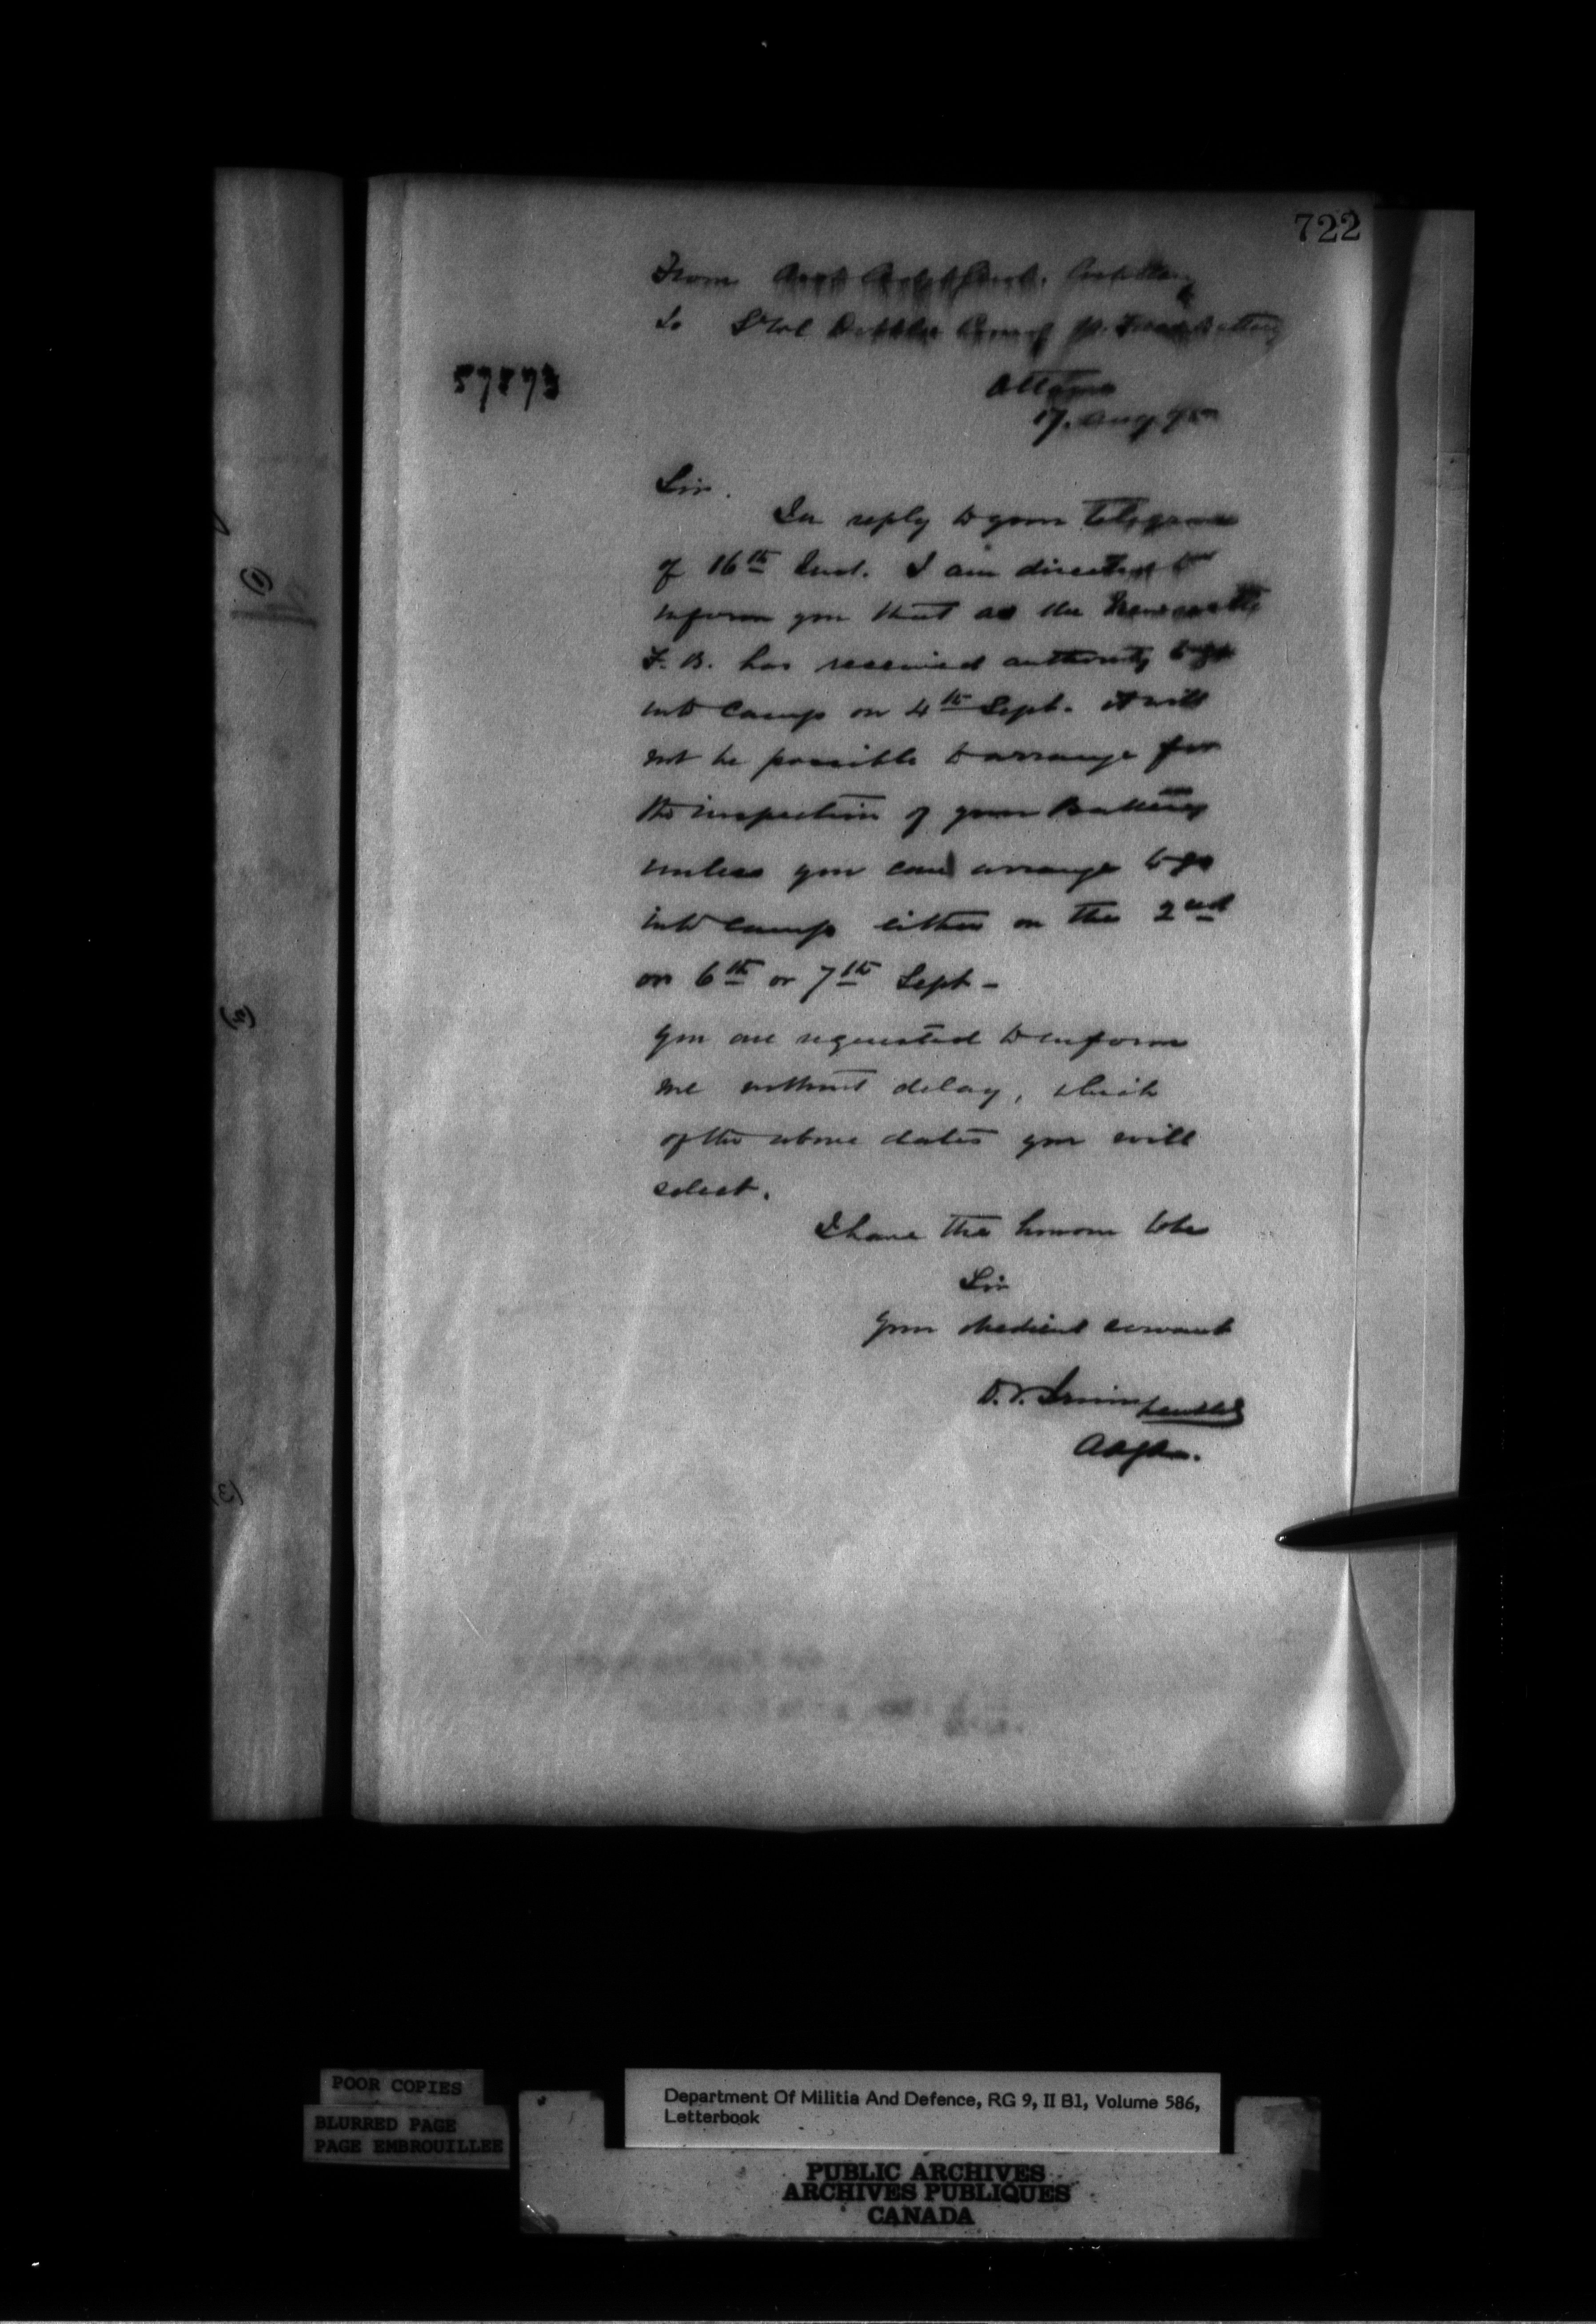 722
From Asst Adjt Genl. Artillery
To Lt Col Comg Field Battery
57873
Ottawa
17. Aug 95
Sir.
In reply to your telegram
of 16th Inst. I am directed to
inform you that as the Newcastle
F. B. has received authority to go
into Camp on 4th Sept. it will
not be possible to arrange for
the inspection of your Battery
unless you can arrange to go
into camp either on the 2nd
or 6th or 7th Sept -
You are requested to inform
me without delay, which
of the above dates you will
select.
I have the honour to be
Sir
Your obedient servant
D. T. Irwin
AAGA.
(2)
(3)
POOR COPIES
BLURRED PAGE
PAGE EMBROUILLEE
Department Of Militia And Defence, RG 9, II B1, Volume 586,
Letterbook
PUBLIC ARCHIVES
ARCHIVES PUBLIQUES
CANADA